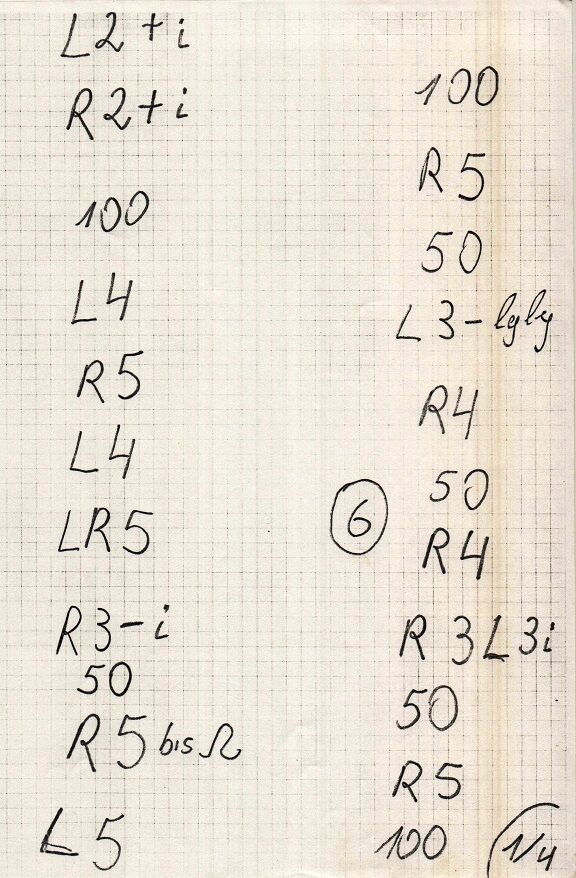 L2+i
R2+i
100
L4
R5
L4
LR5
R3-i
50
R5 bis Ω
L5
100
R5
50
L3-lyly
R4
50
6
R4
R3L3i
50
R5
100
1/4